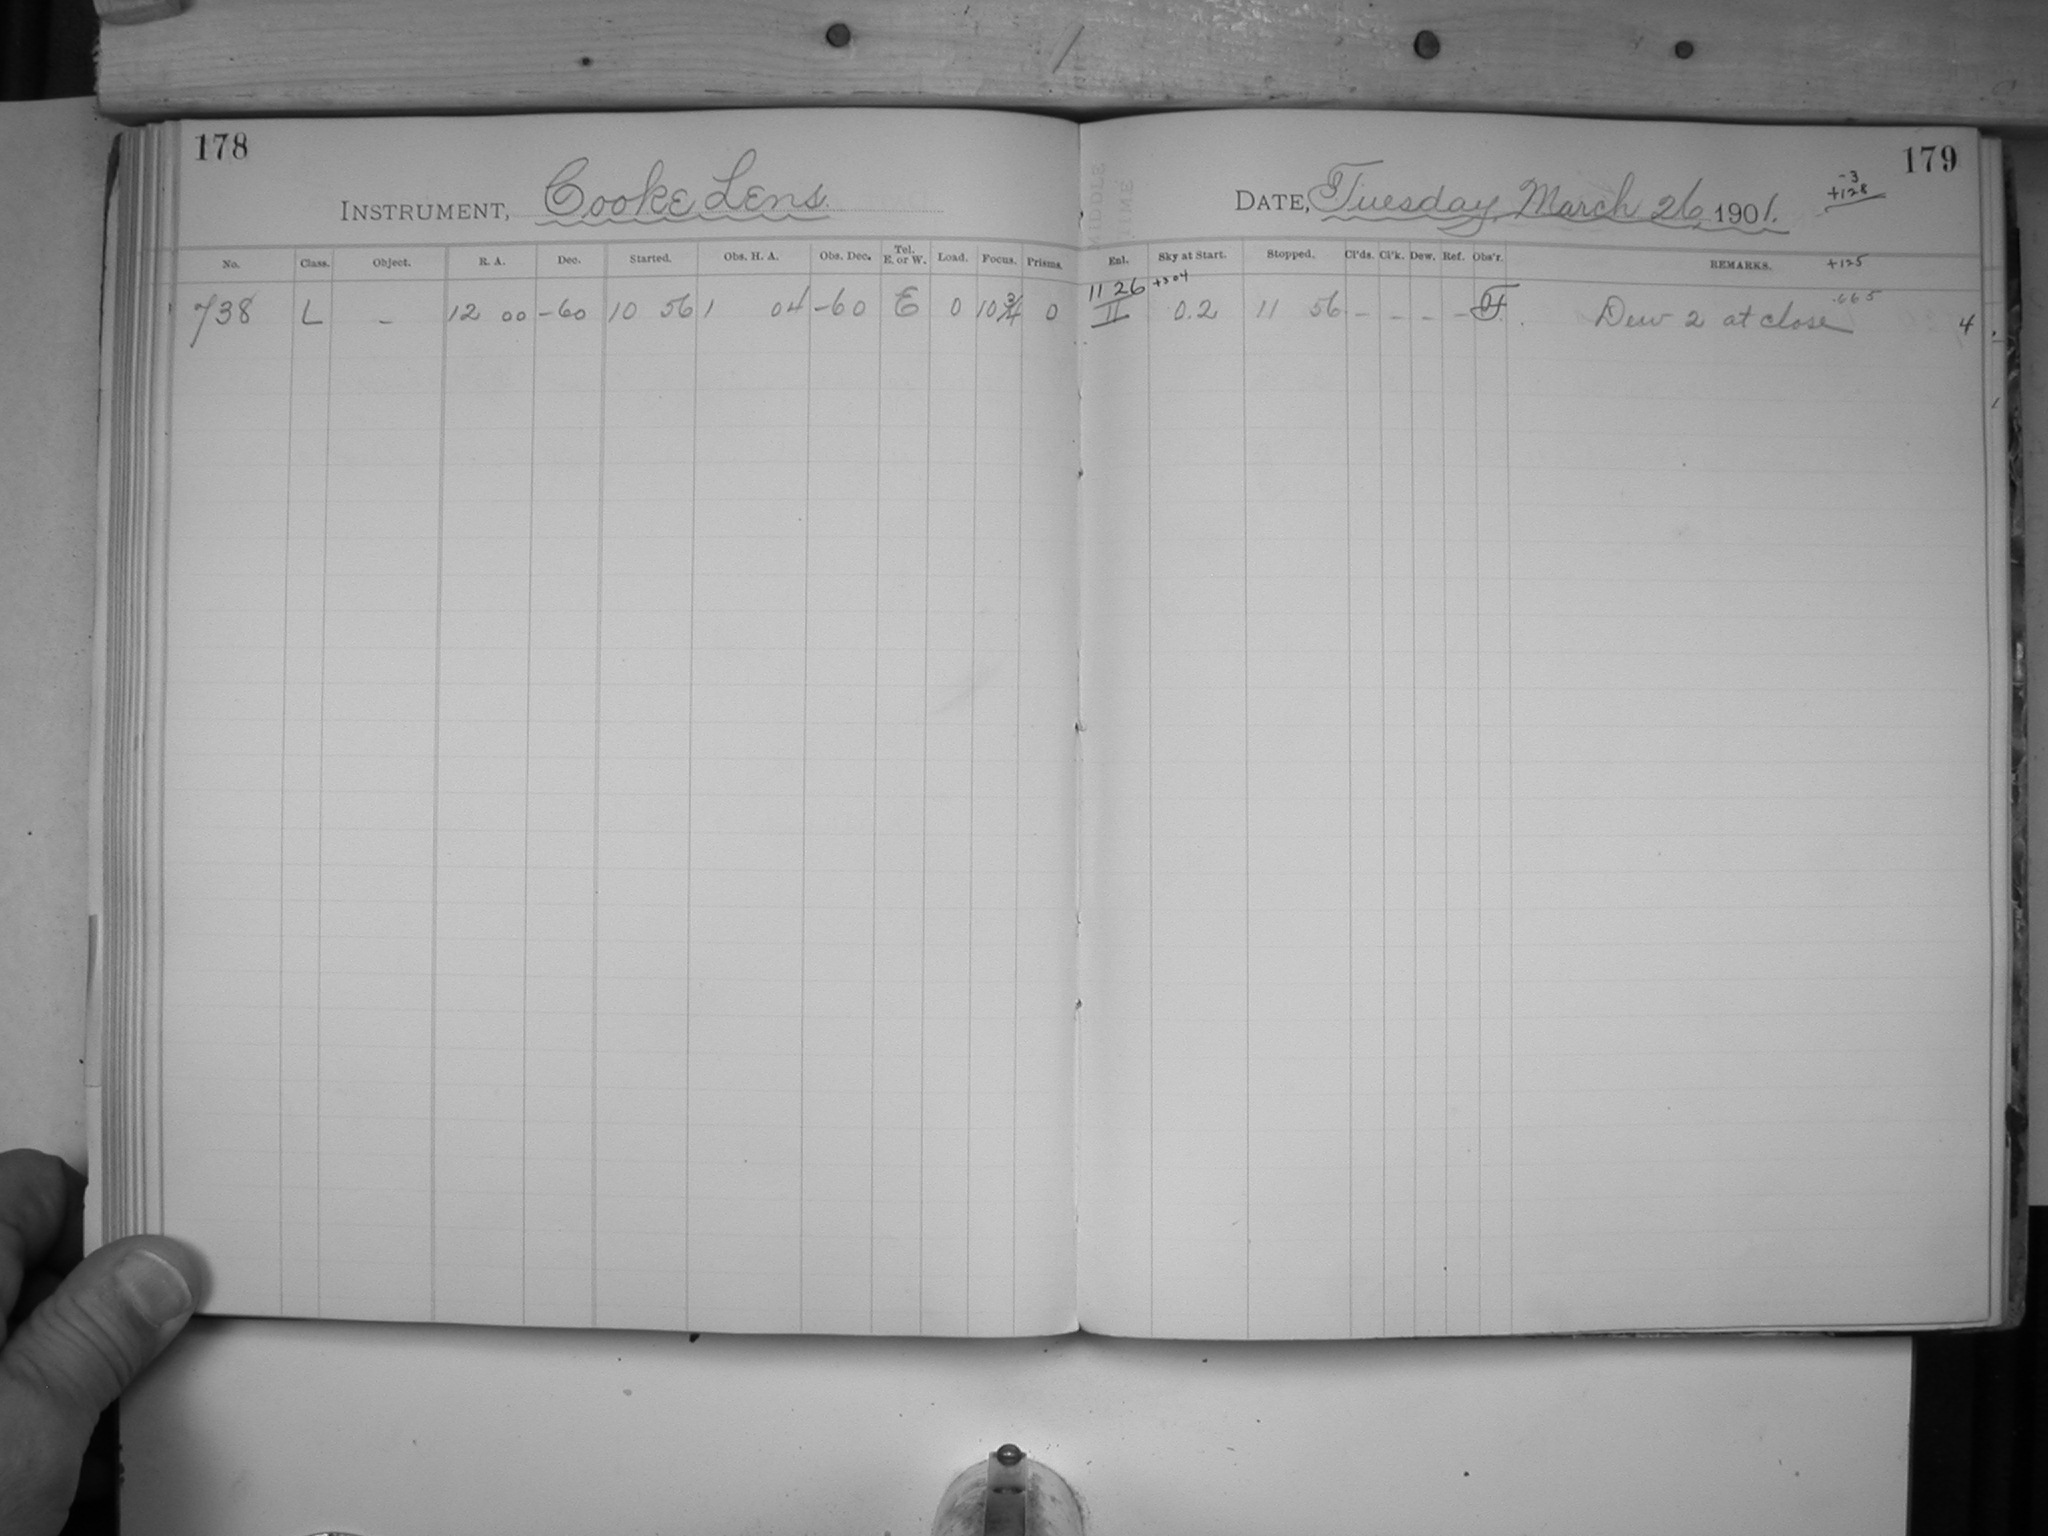 178
INSTRUMENT, Cooke Lens.
No. Class. Object. R. A. Dec. Started. Obs. H. A. Obs. Dec. Tel. E. or W. Load. Focus. Prisms.
738 L - 12 00 -60 10 56 1 04 -60 E 0 10 3/4 0
MIDDLE TIME
179
DATE, Tuesday, March 26, 1901.
-3
+128
+125
Exl. Sky at Start. Stopped. Cl'ds. Cl'k. Dew. Ref. Obs'r. REMARKS.
11 26 +304
.665
II 0.2 11 56 - - - - F. Dew 2 at close 4